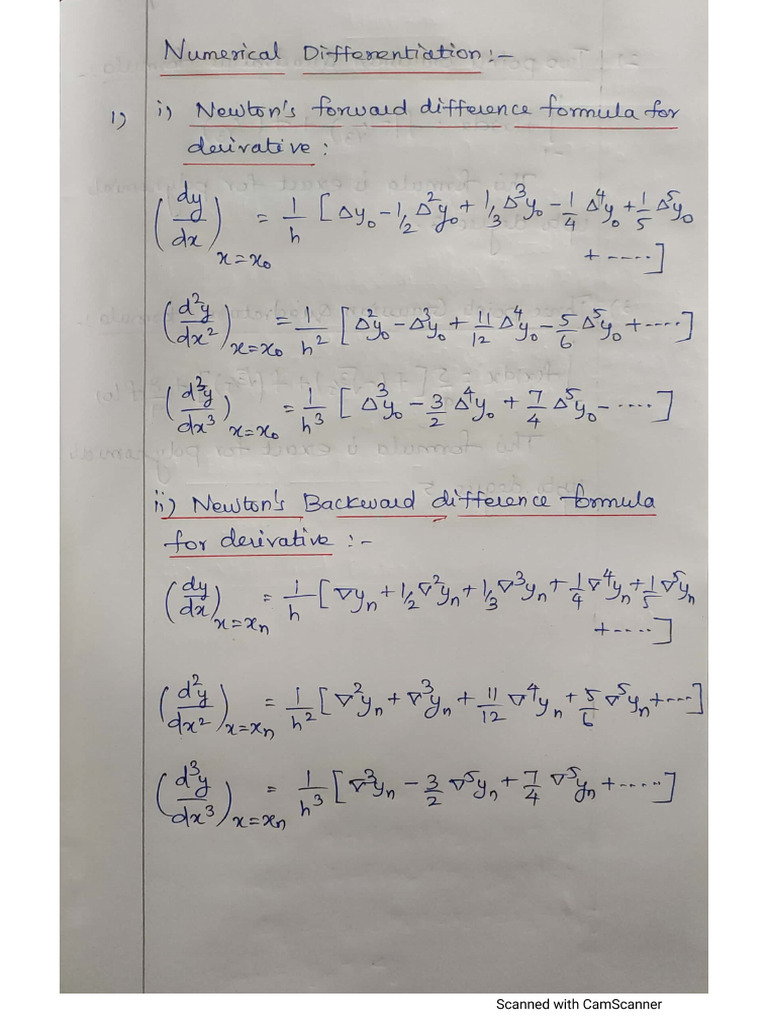 Numerical Differentiation:-
1) i) Newton's forward difference formula for
derivative :
(dy/dx)ₓ₌ₓ₀ = 1/h [Δy₀ - 1/2 Δ²y₀ + 1/3 Δ³y₀ - 1/4 Δ⁴y₀ + 1/5 Δ⁵y₀
+ ----]
(d²y/dx²)ₓ₌ₓ₀ = 1/h² [Δ²y₀ - Δ³y₀ + 11/12 Δ⁴y₀ - 5/6 Δ⁵y₀ + ----]
(d³y/dx³)ₓ₌ₓ₀ = 1/h³ [Δ³y₀ - 3/2 Δ⁴y₀ + 7/4 Δ⁵y₀ - ----]
ii) Newton's Backward difference formula
for derivative :-
(dy/dx)ₓ₌ₓₙ = 1/h [∇yₙ + 1/2 ∇²yₙ + 1/3 ∇³yₙ + 1/4 ∇⁴yₙ + 1/5 ∇⁵yₙ
+ ----]
(d²y/dx²)ₓ₌ₓₙ = 1/h² [∇²yₙ + ∇³yₙ + 11/12 ∇⁴yₙ + 5/6 ∇⁵yₙ + ---]
(d³y/dx³)ₓ₌ₓₙ = 1/h³ [∇³yₙ - 3/2 ∇⁵yₙ + 7/4 ∇⁵yₙ + -----]
Scanned with CamScanner